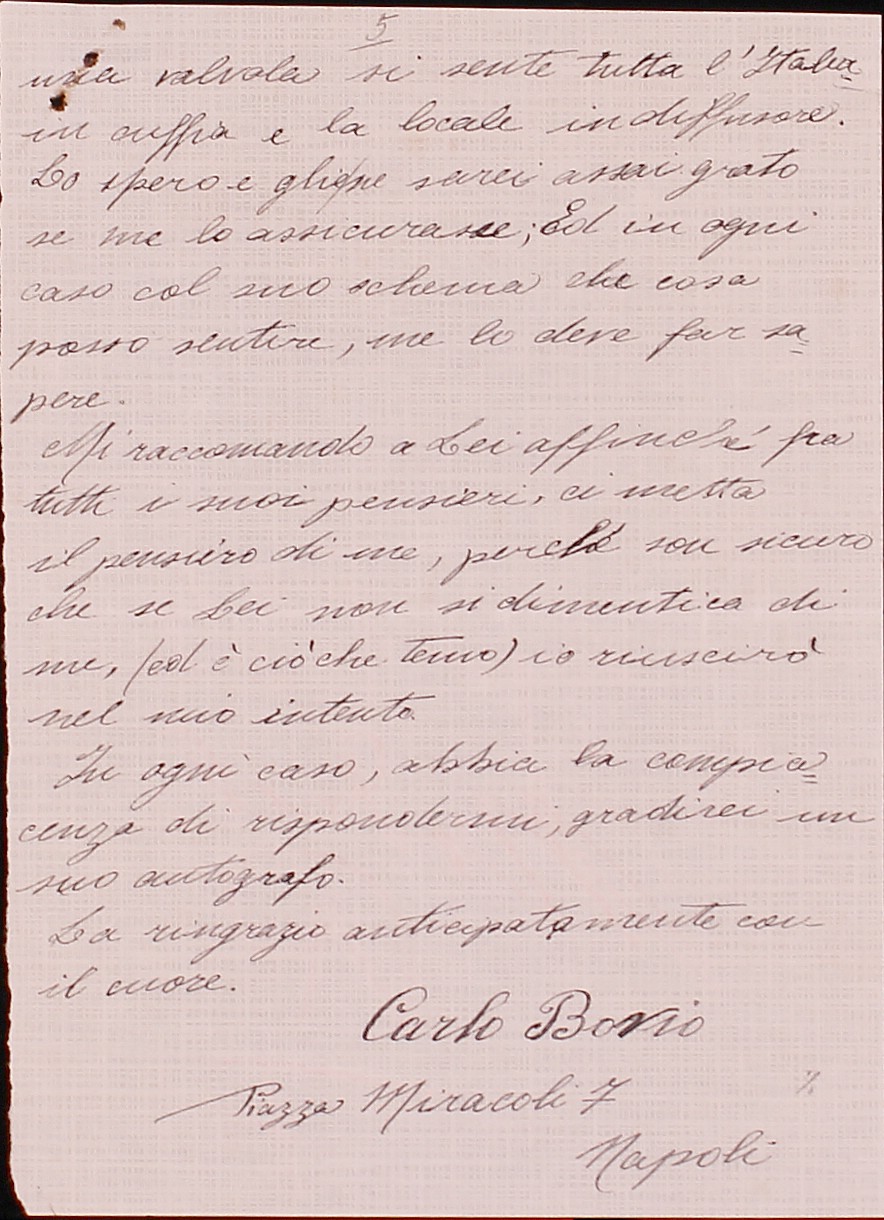 5
una valvola si sente tutta l'Italia
in cuffia e la locale in diffusore.
Lo spero e gliene sarei assai grato
se me lo assicurasse; Ed in ogni
caso col suo schema che cosa
posso sentire, me lo deve far sa=
pere.
Mi raccomando a Lei affinché fra
tutti i suoi pensieri, ci metta
il pensiero di me, perché son sicuro
che se Lei non si dimentica di
me, (ed è ciò che temo) io riuscirò
nel mio intento.
In ogni caso, abbia la compia=
cenza di rispondermi, gradirei un
suo autografo.
La ringrazio anticipatamente con
il cuore.
Carlo Bovio
Piazza Miracoli 7
Napoli